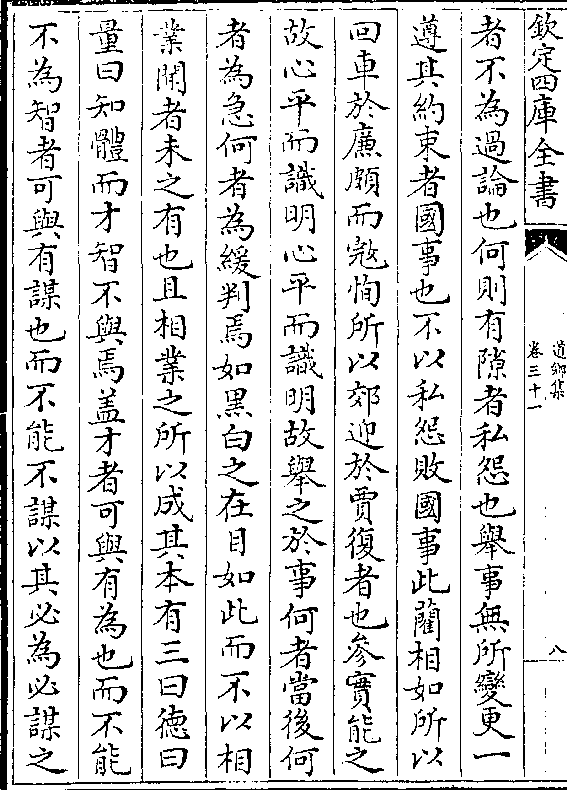 欽定四庫全書
道鄉集
卷三十一
八
者不為過論也何則有隙者私怨也舉事無所變更一
遵其約束者國事也不以私怨敗國事此藺相如所以
回車於廉頗而寇恂所以郊迎於賈復者也參實能之
故心平而識明心平而識明故舉之於事何者當後何
者為急何者為緩判焉如黑白之在目如此而不以相
業聞者未之有也且相業之所以成其本有三曰徳曰
量曰知體而才智不與焉盖才者可與有為也而不能
不為智者可與有謀也而不能不謀以其必為必謀之